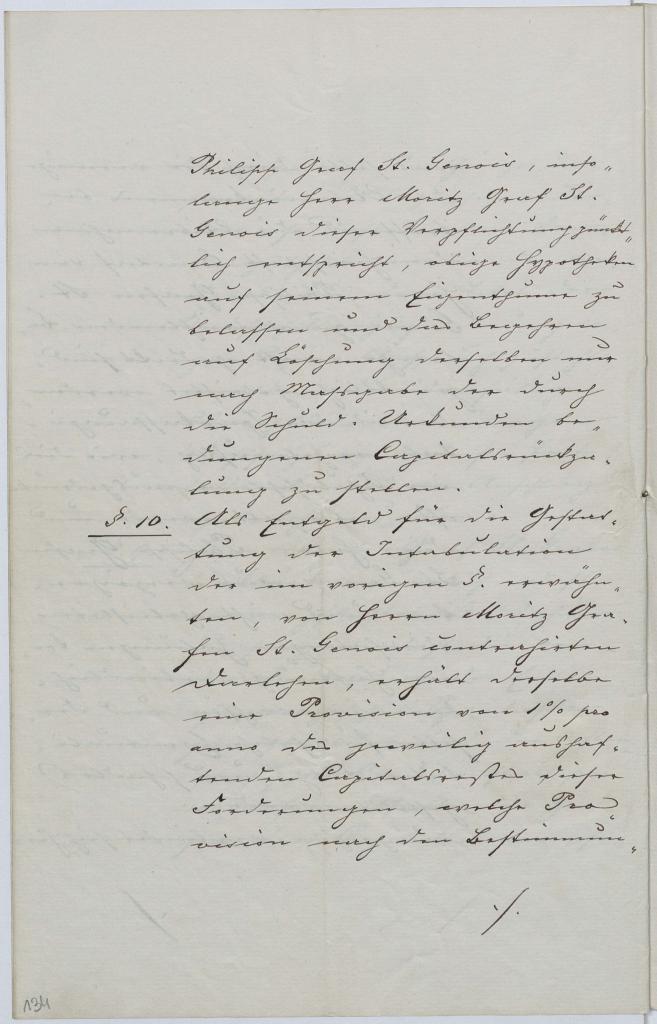 Philipp Graf St. Genois, inso„
lange Herr Moritz Graf St.
Genois dieser Verpflichtung pünkt„
lich entspricht, obige Hypotheken
auf seinem Eigenthume zu
belassen und das Begehren
auf Löschung derselben nur
nach Massgabe der durch
die Schuld-Urkunden be„
dungenen Capitalsrückza-
lung zu stellen.
§. 10. Als Entgeld für die Gestat-
tung der Intabulation
der im vorigen §. erwähn„
ten, von Herrn Moritz Gra-
fen St. Genois contrahirten
Darlehen, erhält derselbe
eine Provision von 1% pro
anno des jeweilig aushaf-
tenden Capitalsrestes dieser
Forderungen, welche Pro„
vision nach den Bestimmun„
./.
134